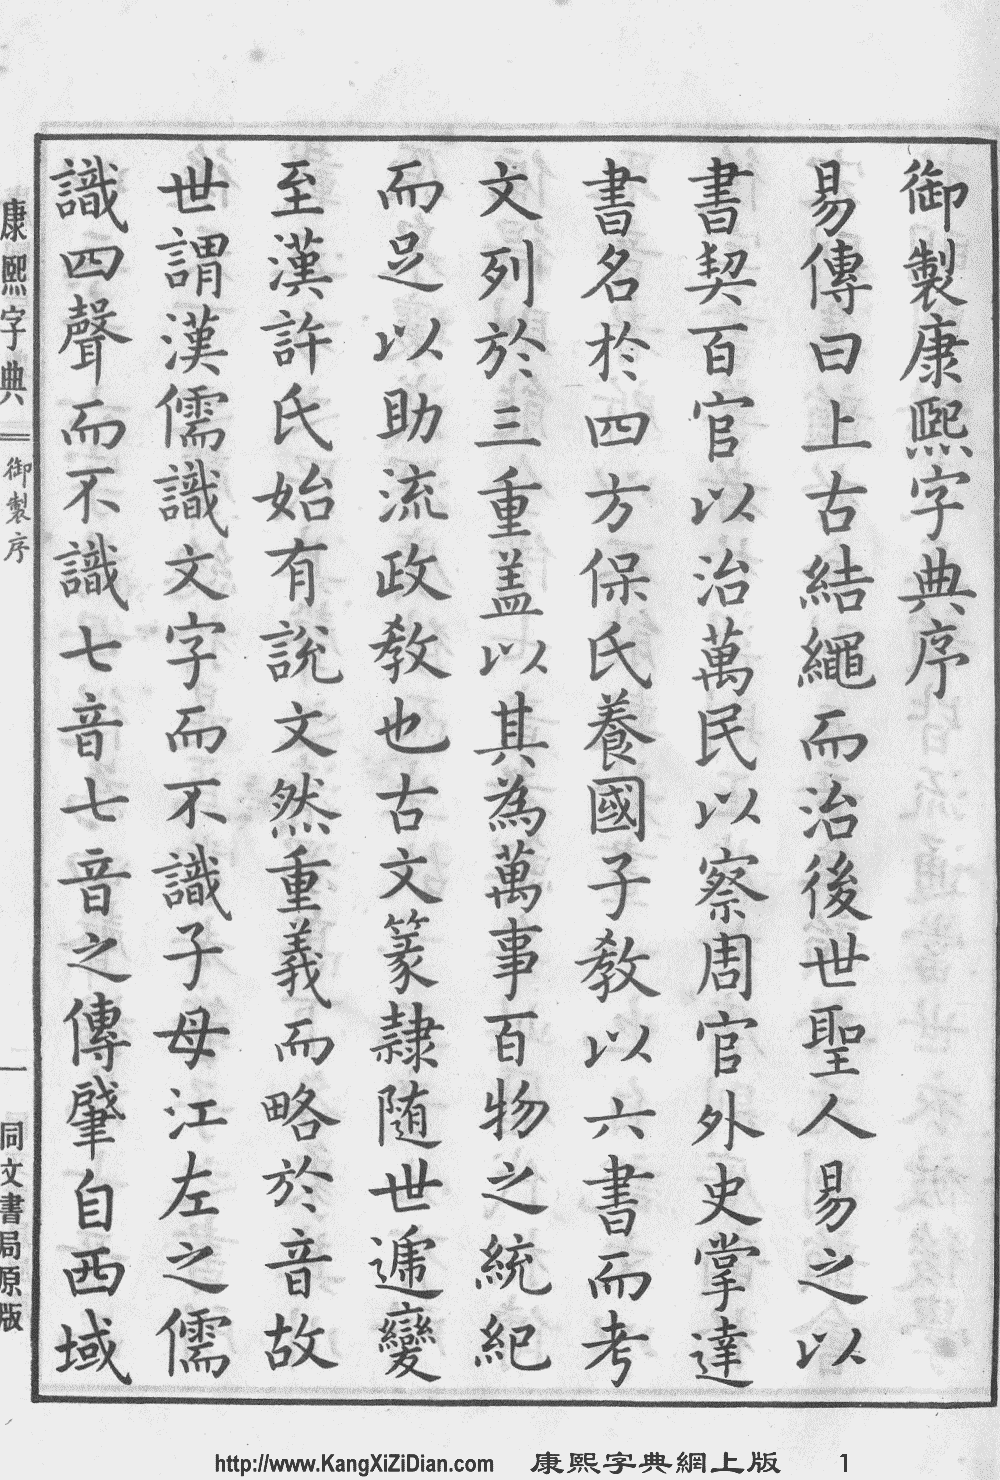 御製康熙字典序
易傳曰上古結繩而治後世聖人易之以
書契百官以治萬民以察周官外史掌達
書名於四方保氏養國子教以六書而考
文列於三重蓋以其為萬事百物之統紀
而足以助流政教也古文篆隸随世遞變
至漢許氏始有說文然重義而略於音故
世謂漢儒識文字而不識子母江左之儒
識四聲而不識七音七音之傳肇自西域
康熙字典
御製序
一
同文書局原版
http://www.KangXiZiDian.com 康熙字典網上版 1